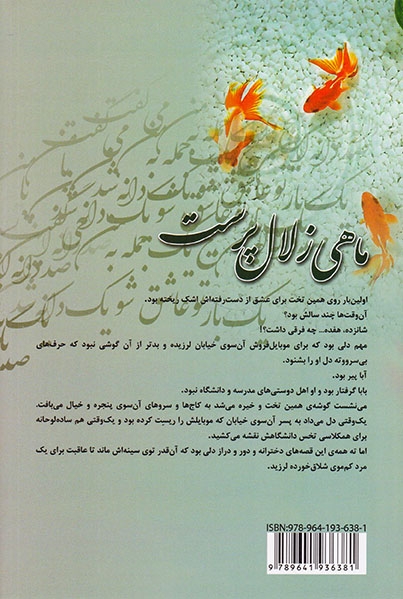 ماهی زلال پرست
اولین‌بار روی همین تخت برای عشق از دست‌رفته‌اش اشک ریخته بود.
آن‌وقت‌ها چند سالش بود؟
شانزده، هفده... چه فرقی داشت؟!
مهم دلی بود که برای موبایل‌فروش آن‌سوی خیابان لرزیده و بدتر از آن گوشی نبود که حرف‌های
بی‌سروته دل او را بشنود.
آبا پیر بود.
بابا گرفتار بود و او اهل دوستی‌های مدرسه و دانشگاه نبود.
می‌نشست گوشه‌ی همین تخت و خیره می‌شد به کاج‌ها و سروهای آن‌سوی پنجره و خیال می‌بافت.
یک‌وقتی دل می‌داد به پسر آن‌سوی خیابان که موبایلش را ریست کرده بود و یک‌وقتی هم ساده‌لوحانه
برای همکلاسی تخس دانشگاهش نقشه می‌کشید.
اما ته همه‌ی این قصه‌های دخترانه و دور و دراز دلی بود که آن‌قدر توی سینه‌اش ماند تا عاقبت برای یک
مرد کم‌موی شلاق‌خورده لرزید.
ISBN:978-964-193-638-1
9789641936381